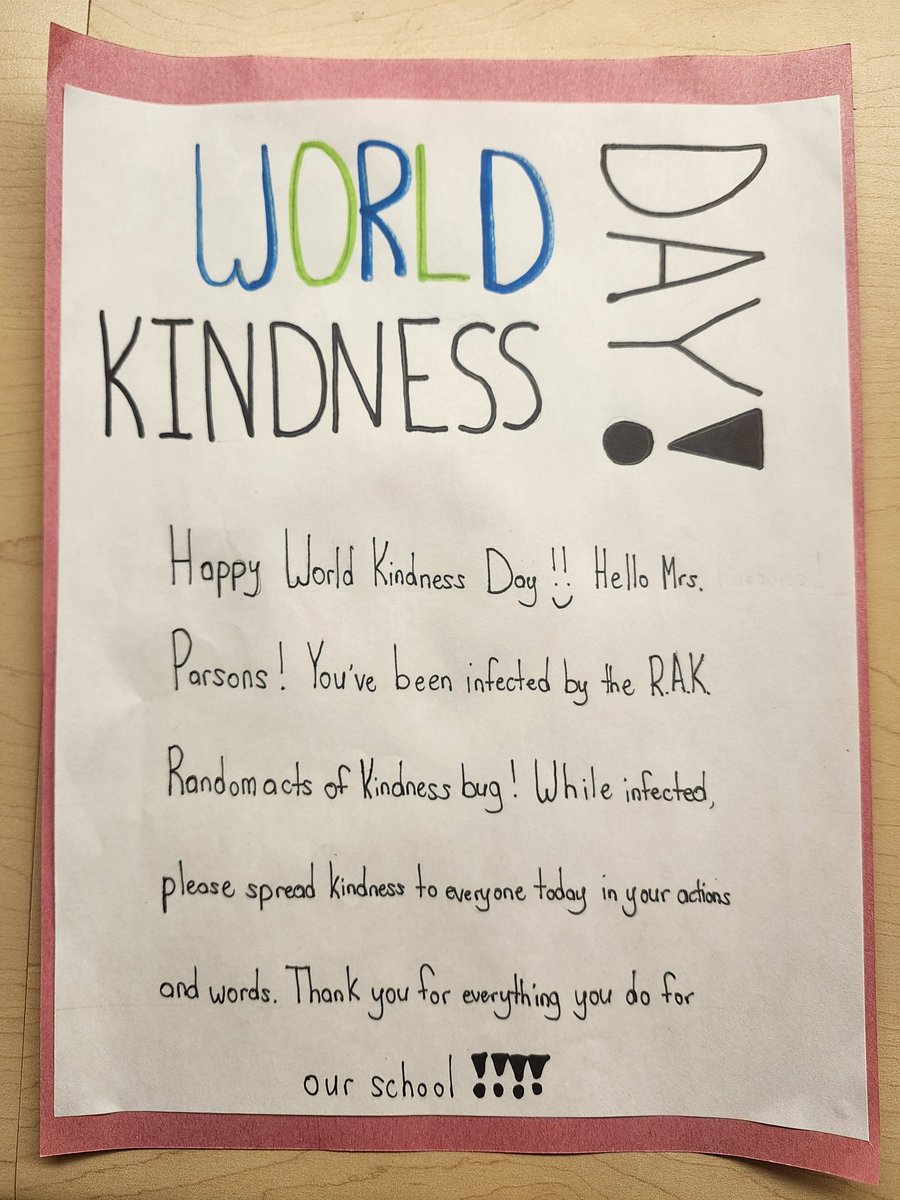 WORLD
KINDNESS
DAY!
Happy World Kindness Day!! Hello Mrs.
Parsons! You've been infected by the R.A.K.
Random acts of Kindness bug! While infected,
please spread kindness to everyone today in your actions
and words. Thank you for everything you do for
our school !!!!